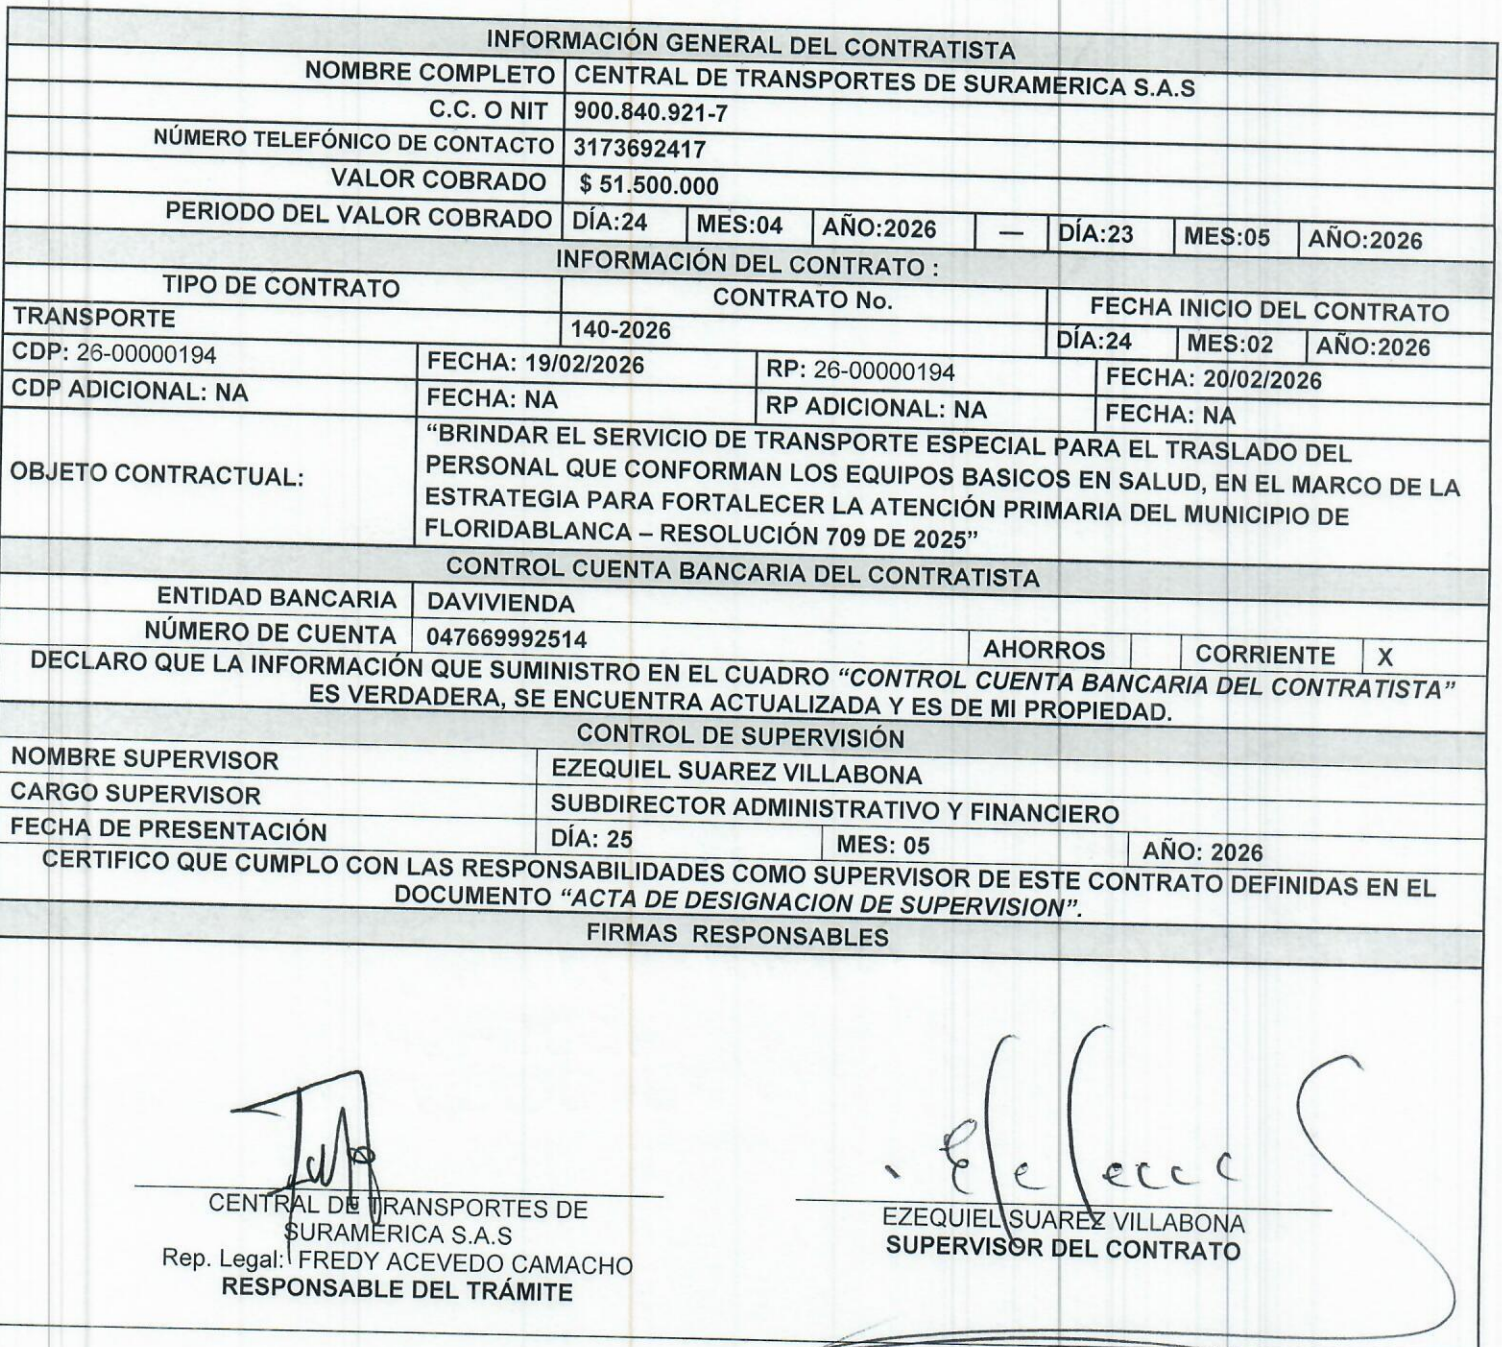 INFORMACIÓN GENERAL DEL CONTRATISTA
NOMBRE COMPLETO CENTRAL DE TRANSPORTES DE SURAMERICA S.A.S
C.C. O NIT 900.840.921-7
NÚMERO TELEFÓNICO DE CONTACTO 3173692417
VALOR COBRADO $ 51.500.000
PERIODO DEL VALOR COBRADO DÍA:24 MES:04 AÑO:2026 — DÍA:23 MES:05 AÑO:2026
INFORMACIÓN DEL CONTRATO :
TIPO DE CONTRATO CONTRATO No. FECHA INICIO DEL CONTRATO
TRANSPORTE 140-2026 DÍA:24 MES:02 AÑO:2026
CDP: 26-00000194 FECHA: 19/02/2026 RP: 26-00000194 FECHA: 20/02/2026
CDP ADICIONAL: NA FECHA: NA RP ADICIONAL: NA FECHA: NA
OBJETO CONTRACTUAL:
“BRINDAR EL SERVICIO DE TRANSPORTE ESPECIAL PARA EL TRASLADO DEL
PERSONAL QUE CONFORMAN LOS EQUIPOS BASICOS EN SALUD, EN EL MARCO DE LA
ESTRATEGIA PARA FORTALECER LA ATENCIÓN PRIMARIA DEL MUNICIPIO DE
FLORIDABLANCA – RESOLUCIÓN 709 DE 2025”
CONTROL CUENTA BANCARIA DEL CONTRATISTA
ENTIDAD BANCARIA DAVIVIENDA
NÚMERO DE CUENTA 047669992514 AHORROS CORRIENTE X
DECLARO QUE LA INFORMACIÓN QUE SUMINISTRO EN EL CUADRO “CONTROL CUENTA BANCARIA DEL CONTRATISTA”
ES VERDADERA, SE ENCUENTRA ACTUALIZADA Y ES DE MI PROPIEDAD.
CONTROL DE SUPERVISIÓN
NOMBRE SUPERVISOR EZEQUIEL SUAREZ VILLABONA
CARGO SUPERVISOR SUBDIRECTOR ADMINISTRATIVO Y FINANCIERO
FECHA DE PRESENTACIÓN DÍA: 25 MES: 05 AÑO: 2026
CERTIFICO QUE CUMPLO CON LAS RESPONSABILIDADES COMO SUPERVISOR DE ESTE CONTRATO DEFINIDAS EN EL
DOCUMENTO “ACTA DE DESIGNACION DE SUPERVISION”.
FIRMAS RESPONSABLES
CENTRAL DE TRANSPORTES DE
SURAMERICA S.A.S
Rep. Legal: FREDY ACEVEDO CAMACHO
RESPONSABLE DEL TRÁMITE
EZEQUIEL SUAREZ VILLABONA
SUPERVISOR DEL CONTRATO